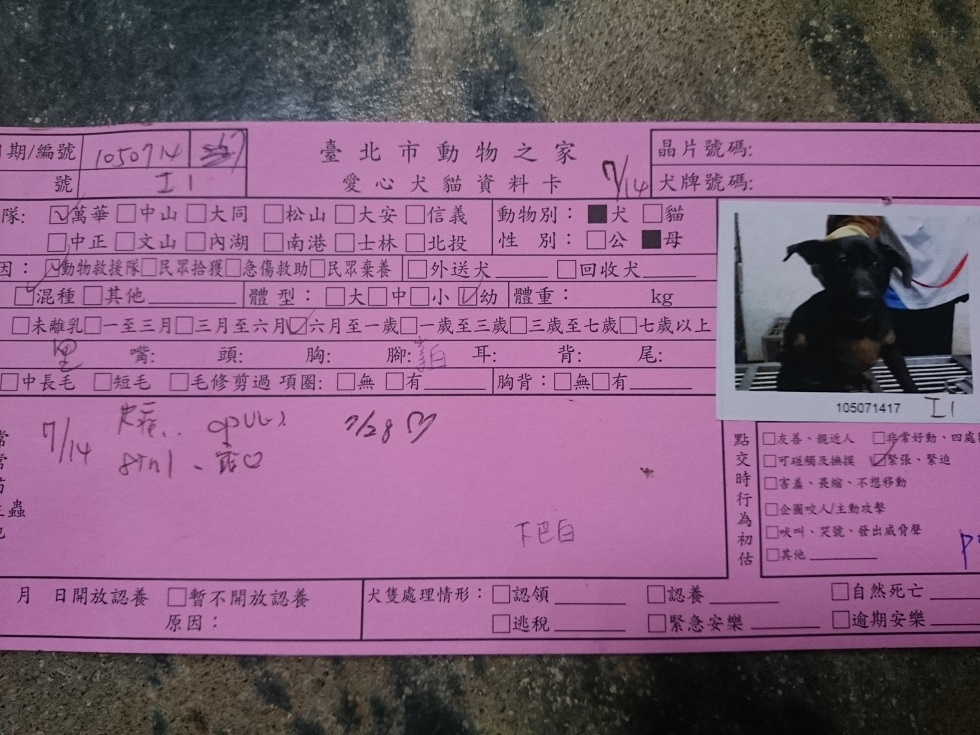 日期/編號 1050714
臺北市動物之家
晶片號碼:
號 I1
愛心犬貓資料卡 7/14
犬牌號碼:
隊: ☑萬華 □中山 □大同 □松山 □大安 □信義 動物別: ■犬 □貓
□中正 □文山 □內湖 □南港 □士林 □北投 性 別: □公 ■母
因: ☑動物救援隊 □民眾拾獲 □急傷救助 □民眾棄養 □外送犬____ □回收犬____
☑混種 □其他____ 體型: □大 □中 □小 ☑幼 體重: kg
□未離乳 □一至三月 □三月至六月 ☑六月至一歲 □一歲至三歲 □三歲至七歲 □七歲以上
嘴: 頭: 胸: 腳: 白 耳: 背: 尾:
□中長毛 □短毛 □毛修剪過 項圈: □無 □有____ 胸背: □無 □有____
105071417 I1
7/14
7/28
下巴白
點交時行為初估
□友善、親近人 □非常好動、四處
□可碰觸及撫摸 ☑緊張、緊迫
□害羞、畏縮、不想移動
□企圖咬人/主動攻擊
□吠叫、哭號、發出威脅聲
□其他____
月 日開放認養 □暫不開放認養
原因:
犬隻處理情形: □認領____ □認養____ □自然死亡____
□逃稅____ □緊急安樂____ □逾期安樂____